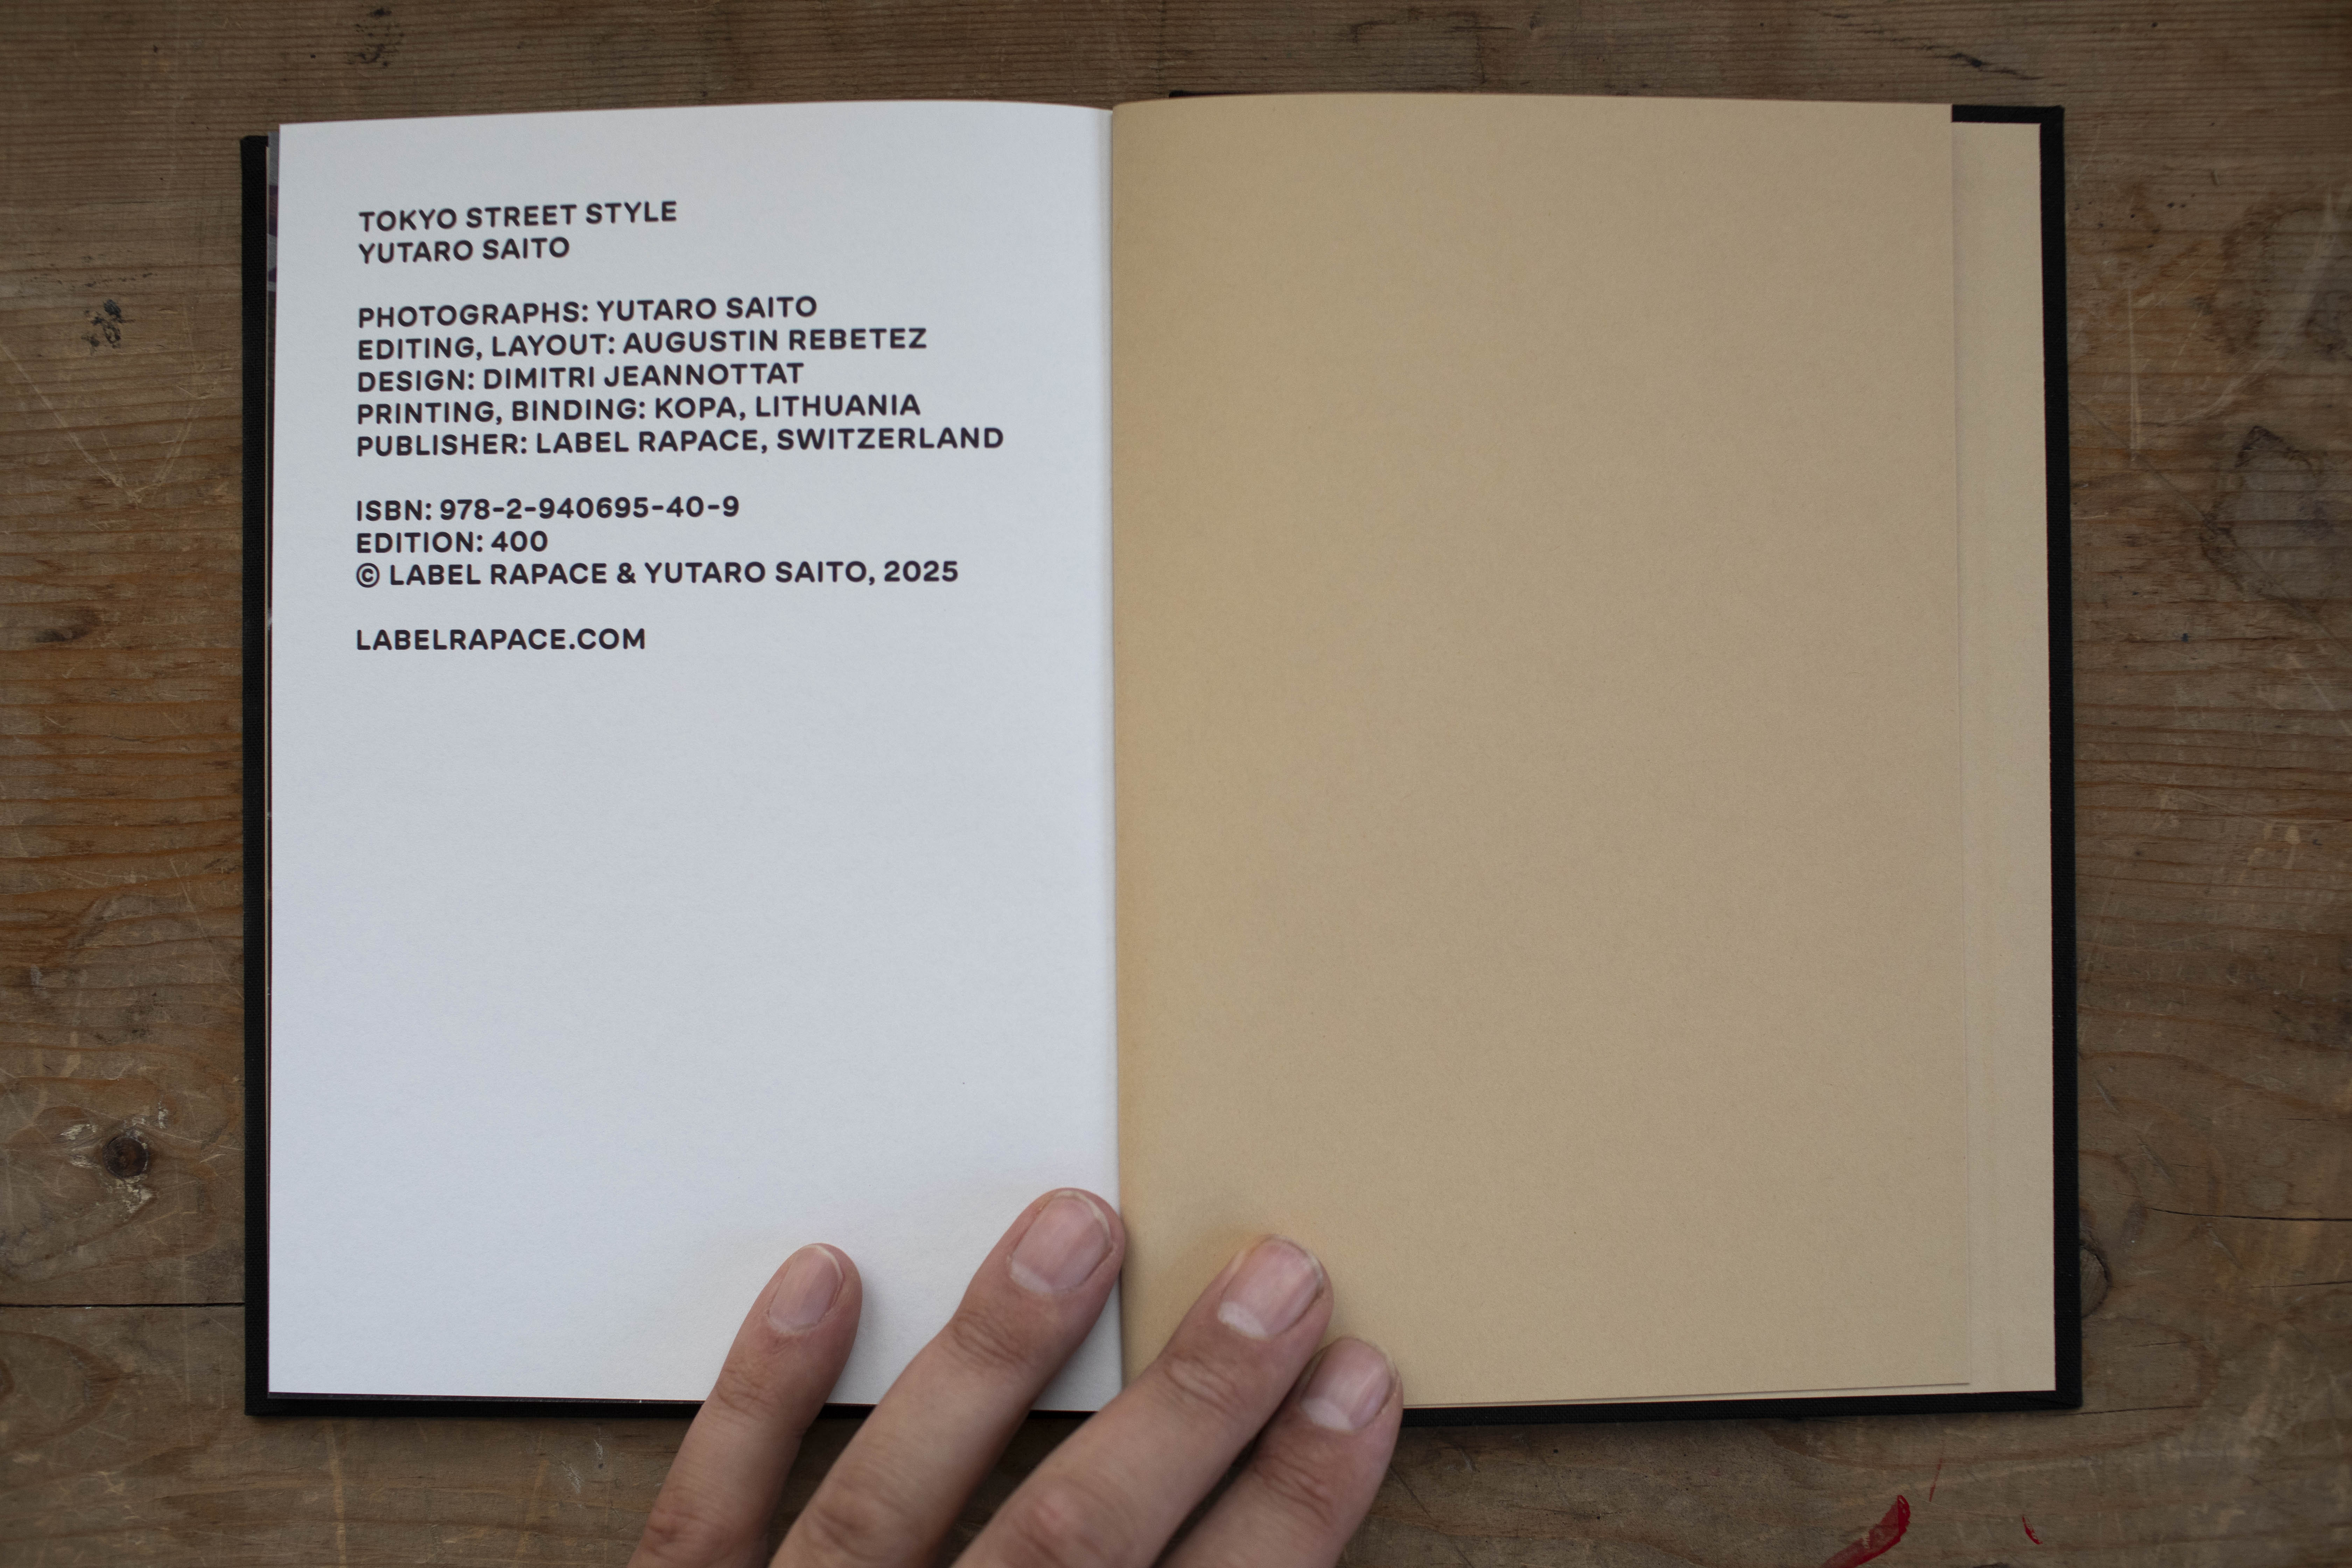 TOKYO STREET STYLE
YUTARO SAITO
PHOTOGRAPHS: YUTARO SAITO
EDITING, LAYOUT: AUGUSTIN REBETEZ
DESIGN: DIMITRI JEANNOTTAT
PRINTING, BINDING: KOPA, LITHUANIA
PUBLISHER: LABEL RAPACE, SWITZERLAND
ISBN: 978-2-940695-40-9
EDITION: 400
© LABEL RAPACE & YUTARO SAITO, 2025
LABELRAPACE.COM